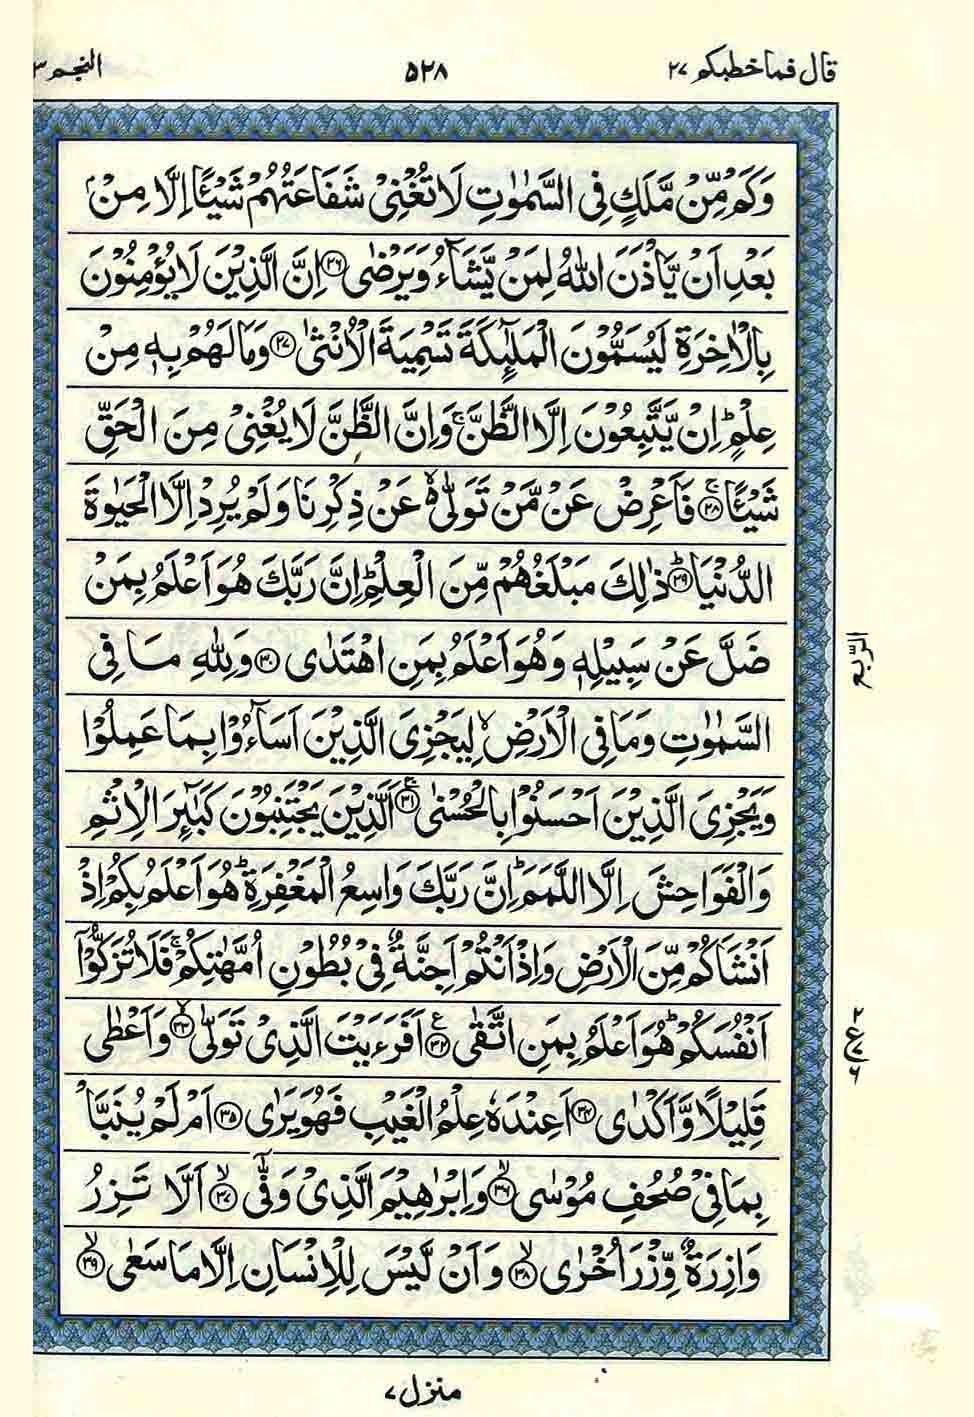 قال فما خطبكم ۲۷
۵۲۸
النجم ۵۳
وَكَمْ مِّنْ مَّلَكٍ فِى السَّمٰوٰتِ لَا تُغْنِىْ شَفَاعَتُهُمْ شَيْـًٔا اِلَّا مِنْۢ
بَعْدِ اَنْ يَّاْذَنَ اللّٰهُ لِمَنْ يَّشَآءُ وَيَرْضٰى ۝۲۶ اِنَّ الَّذِيْنَ لَا يُؤْمِنُوْنَ
بِالْاٰخِرَةِ لَيُسَمُّوْنَ الْمَلٰٓئِكَةَ تَسْمِيَةَ الْاُنْثٰى ۝۲۷ وَمَا لَهُمْ بِهٖ مِنْ
عِلْمٍ ؕ اِنْ يَّتَّبِعُوْنَ اِلَّا الظَّنَّ ۚ وَاِنَّ الظَّنَّ لَا يُغْنِىْ مِنَ الْحَقِّ
شَيْـًٔا ۚ ۝۲۸ فَاَعْرِضْ عَنْ مَّنْ تَوَلّٰى ۙ عَنْ ذِكْرِنَا وَلَمْ يُرِدْ اِلَّا الْحَيٰوةَ
الدُّنْيَا ؕ ۝۲۹ ذٰلِكَ مَبْلَغُهُمْ مِّنَ الْعِلْمِ ؕ اِنَّ رَبَّكَ هُوَ اَعْلَمُ بِمَنْ
ضَلَّ عَنْ سَبِيْلِهٖ وَهُوَ اَعْلَمُ بِمَنِ اهْتَدٰى ۝۳۰ وَلِلّٰهِ مَا فِى
السَّمٰوٰتِ وَمَا فِى الْاَرْضِ ۙ لِيَجْزِىَ الَّذِيْنَ اَسَآءُوْا بِمَا عَمِلُوْا
وَيَجْزِىَ الَّذِيْنَ اَحْسَنُوْا بِالْحُسْنٰى ۚ ۝۳۱ اَلَّذِيْنَ يَجْتَنِبُوْنَ كَبٰٓئِرَ الْاِثْمِ
وَالْفَوَاحِشَ اِلَّا اللَّمَمَ ؕ اِنَّ رَبَّكَ وَاسِعُ الْمَغْفِرَةِ ؕ هُوَ اَعْلَمُ بِكُمْ اِذْ
اَنْشَاَكُمْ مِّنَ الْاَرْضِ وَاِذْ اَنْتُمْ اَجِنَّةٌ فِىْ بُطُوْنِ اُمَّهٰتِكُمْ ۚ فَلَا تُزَكُّوْٓا
اَنْفُسَكُمْ ؕ هُوَ اَعْلَمُ بِمَنِ اتَّقٰى ۝۳۲ اَفَرَءَيْتَ الَّذِىْ تَوَلّٰى ۙ ۝۳۳ وَاَعْطٰى
قَلِيْلًا وَّاَكْدٰى ۝۳۴ اَعِنْدَهٗ عِلْمُ الْغَيْبِ فَهُوَ يَرٰى ۝۳۵ اَمْ لَمْ يُنَبَّاْ
بِمَا فِىْ صُحُفِ مُوْسٰى ۙ ۝۳۶ وَاِبْرٰهِيْمَ الَّذِىْ وَفّٰٓى ۙ ۝۳۷ اَلَّا تَزِرُ
وَازِرَةٌ وِّزْرَ اُخْرٰى ۙ ۝۳۸ وَاَنْ لَّيْسَ لِلْاِنْسَانِ اِلَّا مَا سَعٰى ۙ ۝۳۹
الرّبع
۲
ع
۶
منزل ۷